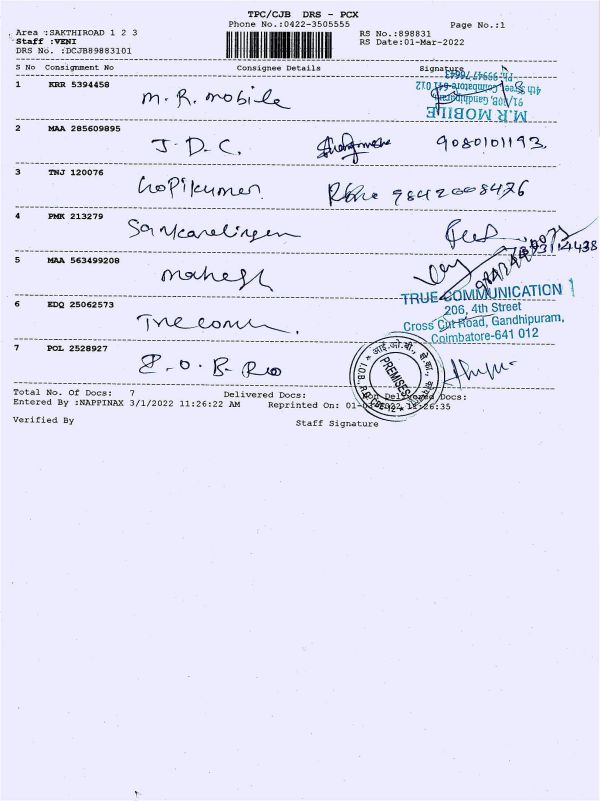 TPC/CJB DRS - PCX
Phone No.:0422-3505555
Page No.:1
Area :SAKTHIROAD 1 2 3
RS No.:898831
Staff :VENI
RS Date:01-Mar-2022
DRS No. :DCJB89883101
S No Consignment No Consignee Details Signature
1 KRR 5394458 M.R. mobile
M.R MOBILE
91/80B, Gandhipuram
4th Street, Coimbatore-641 012
2 MAA 285609895 J.D.C. 9080101193
3 TNJ 120076 Gopikumar 9842008426
4 PMK 213279 Sankaralingam
5 MAA 563499208 Mahesh
TRUE COMMUNICATION
206, 4th Street
Cross Cut Road, Gandhipuram,
Coimbatore-641 012
6 EDQ 25062573 True comm.
7 POL 2528927
PREMISES
Total No. Of Docs: 7 Delivered Docs: Non Delivered Docs:
Entered By :NAPPINAX 3/1/2022 11:26:22 AM Reprinted On: 01-03-2022 11:26:35
Verified By Staff Signature